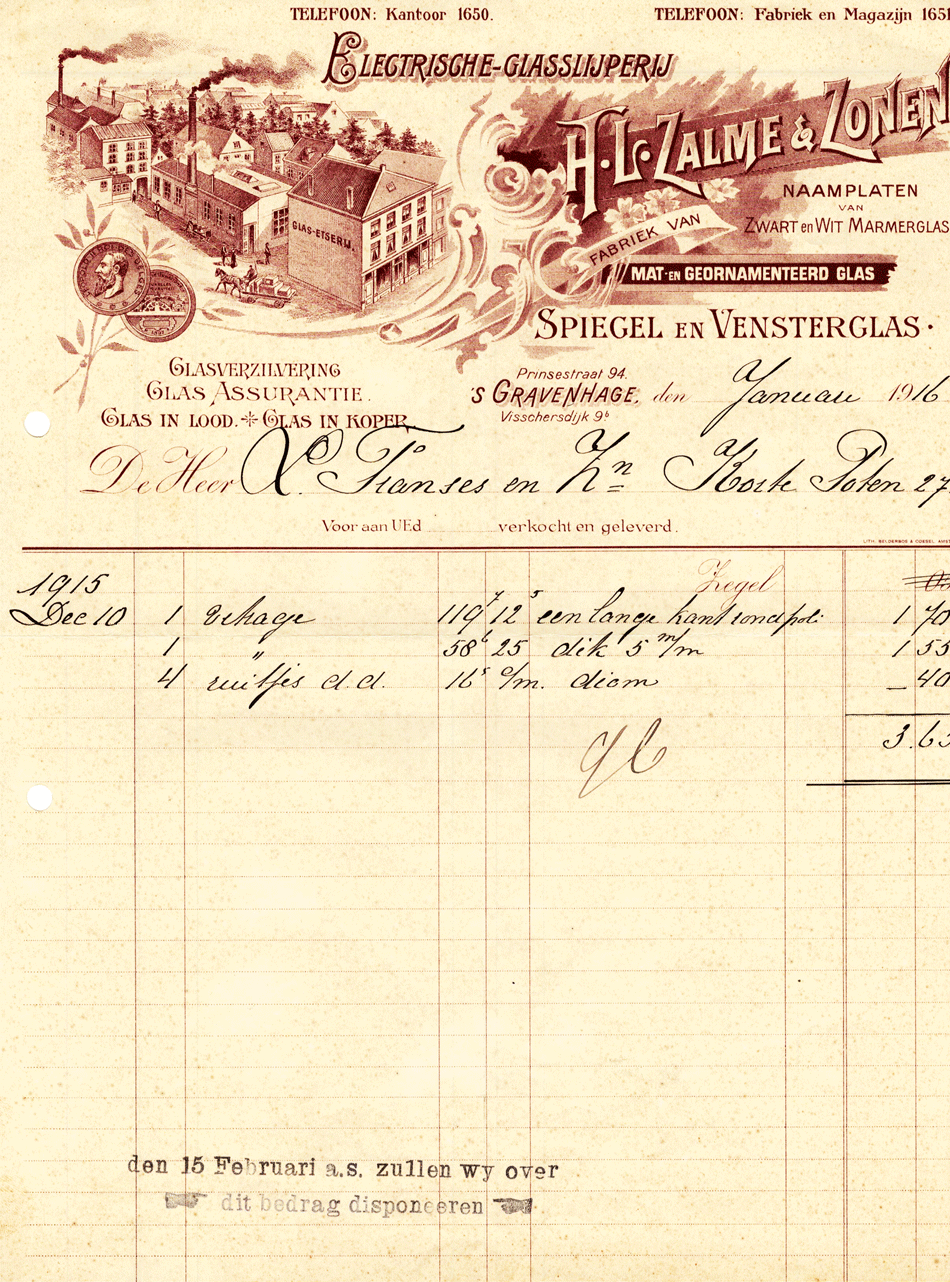 TELEFOON: Kantoor 1650. TELEFOON: Fabriek en Magazijn 1651
ELECTRISCHE-GLASSLIJPERIJ
H.L. ZALME & ZONEN
NAAMPLATEN
VAN
ZWART en WIT MARMERGLAS
FABRIEK VAN
MAT-EN GEORNAMENTEERD GLAS
GLAS-ETSERIJ.
SPIEGEL EN VENSTERGLAS.
GLASVERZILVERING
GLAS ASSURANTIE.
GLAS IN LOOD.✻GLAS IN KOPER.
Prinsestraat 94.
'S GRAVENHAGE, den Januari 1916
Visschersdijk 9b
De Heer L. Franses en Zn Korte Poten 27
Voor aan UEd verkocht en geleverd.
LITH. SELDERBOS & COESEL. AMST
1915 Zegel
Dec 10 1 etage 119 7 12 5 een lange kant rond pol: 1 70
1 " 58 6 25 dik 5 m/m 1 55
4 ruitjes d.d. 16 5 c/m. diam — 40
3.65
den 15 Februari a.s. zullen wy over
dit bedrag disponeeren